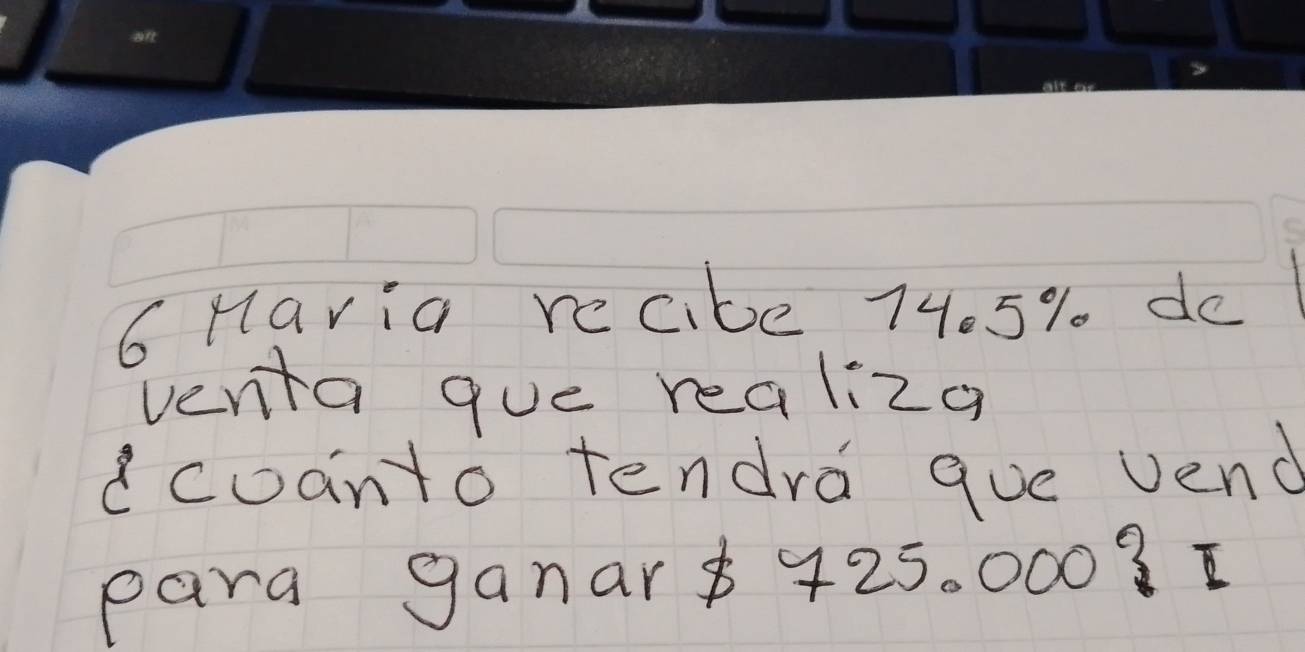 alt
alt gr
>
M
A
S
6 Maria recibe 14.5% de l
venta que realiza
¿cuánto tendrá que vend
para ganar $ 725.000? I